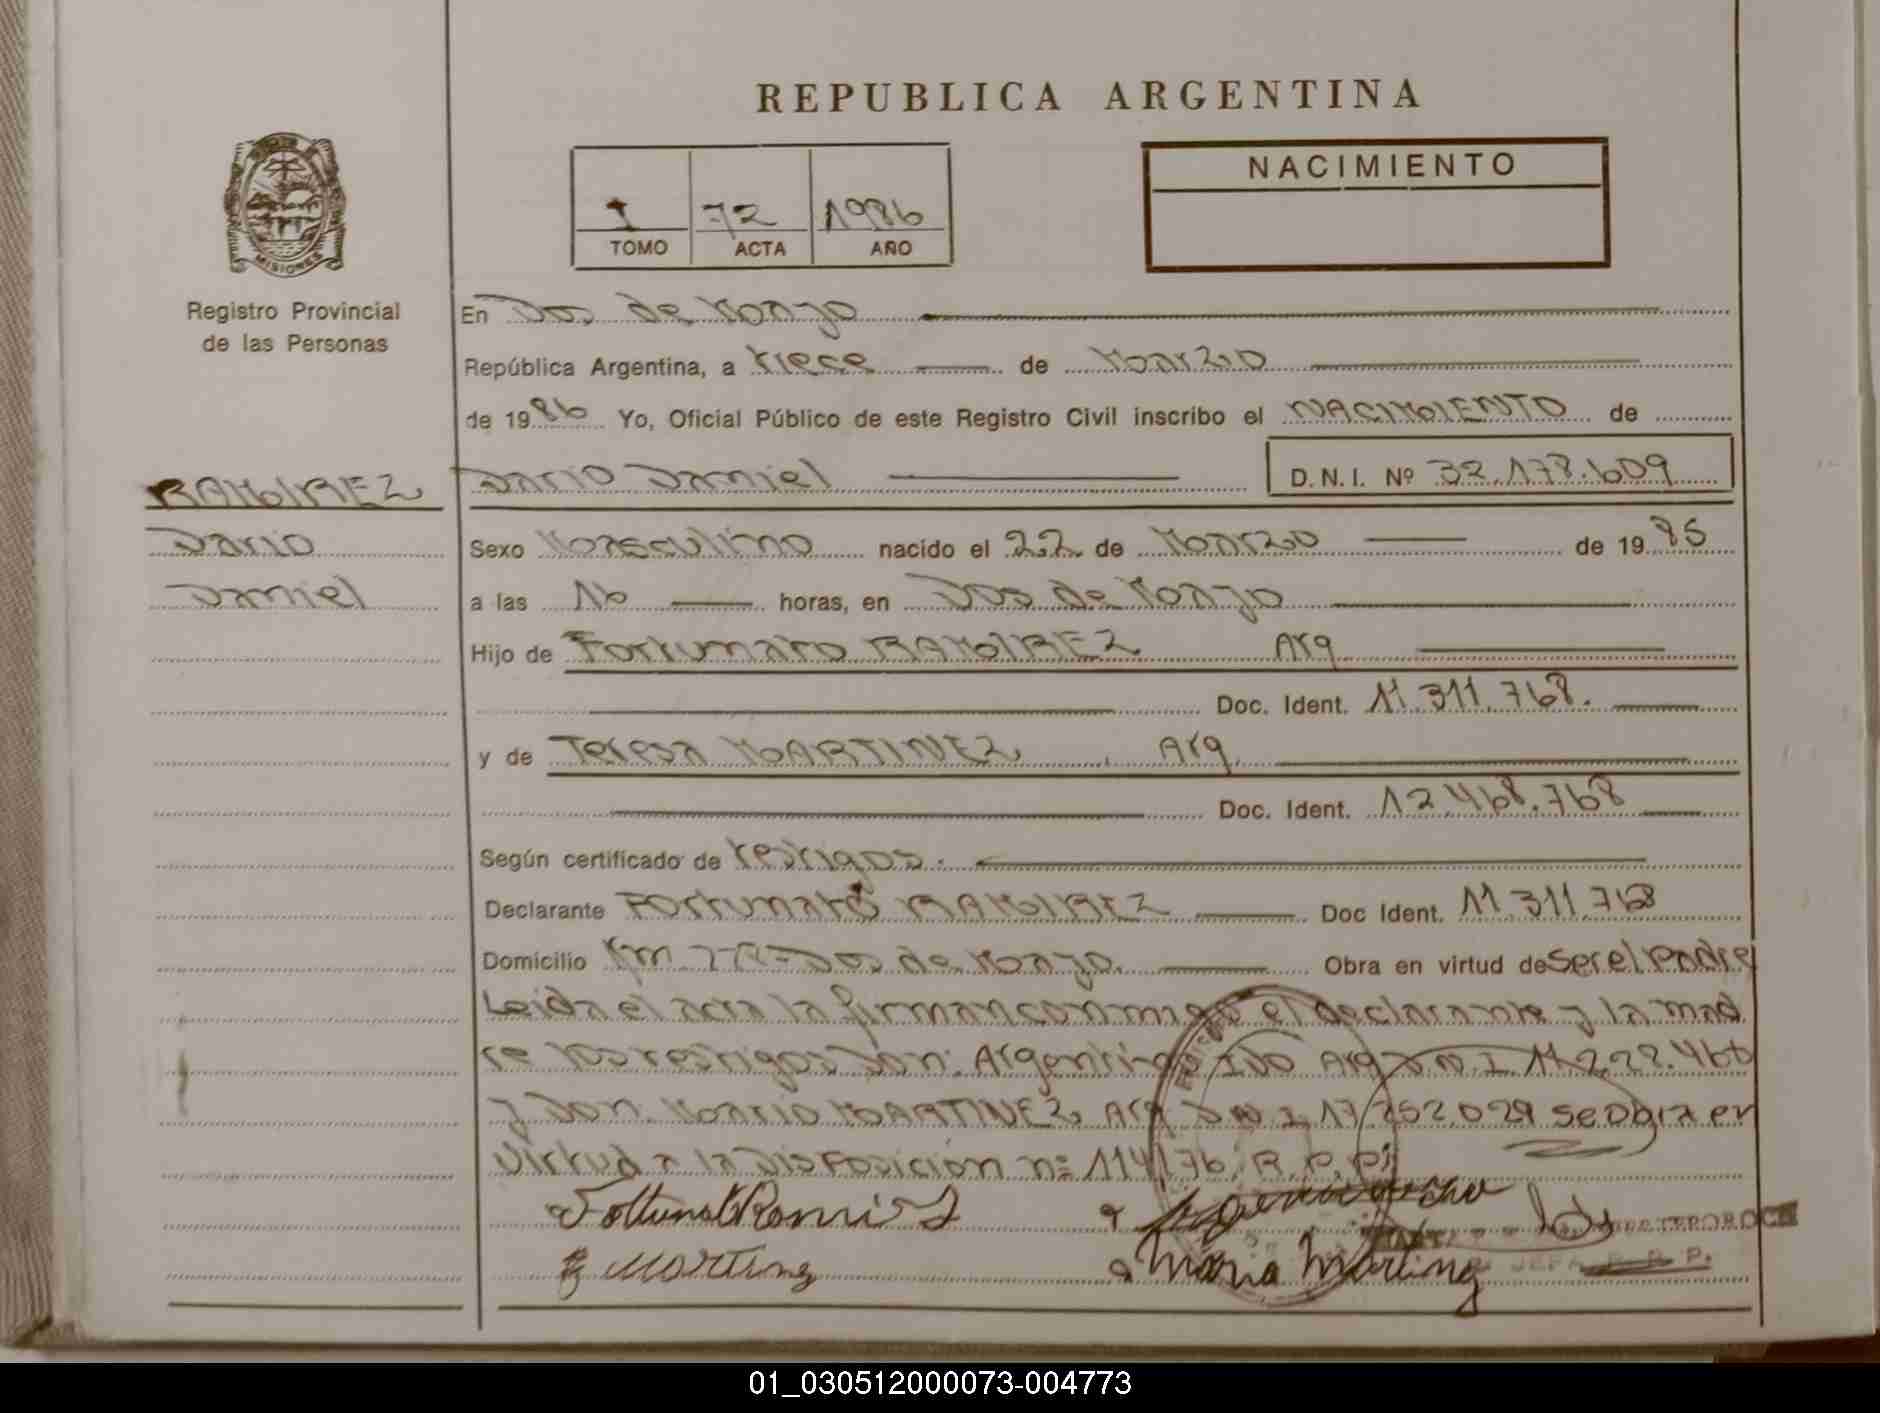 REPUBLICA ARGENTINA
MISIONES
Registro Provincial
de las Personas
I 72 1986
TOMO ACTA AÑO
NACIMIENTO
En Dos de Mayo
República Argentina, a trece de Marzo
de 1986 Yo, Oficial Público de este Registro Civil inscribo el NACIMIENTO de
RAMIREZ Dario Daniel D.N.I. Nº 32.178.609
Dario Sexo Masculino nacido el 22 de Marzo de 1985
Daniel a las 16 horas, en Dos de Mayo
Hijo de Fortunato RAMIREZ Arg
Doc. Ident. 11.311.768.
y de Teresa MARTINEZ Arg.
Doc. Ident. 12.468.768
Según certificado de testigos.
Declarante Fortunato RAMIREZ Doc Ident. 11.311.768
Domicilio Km Dos de Mayo. Obra en virtud de ser el Padre
Leida el acta la firman conmigo el declarante y la mad
re los testigos Don: Argentino Arg D.N.I.
y Don. Mario MARTINEZ Arg D.N.I 17.252.029 se obra en
virtud a la Disposición nº 114/76. R.P.P.
Fortunato Rami
Martinez Mario Martinez JEFA R. P. P.
01_030512000073-004773